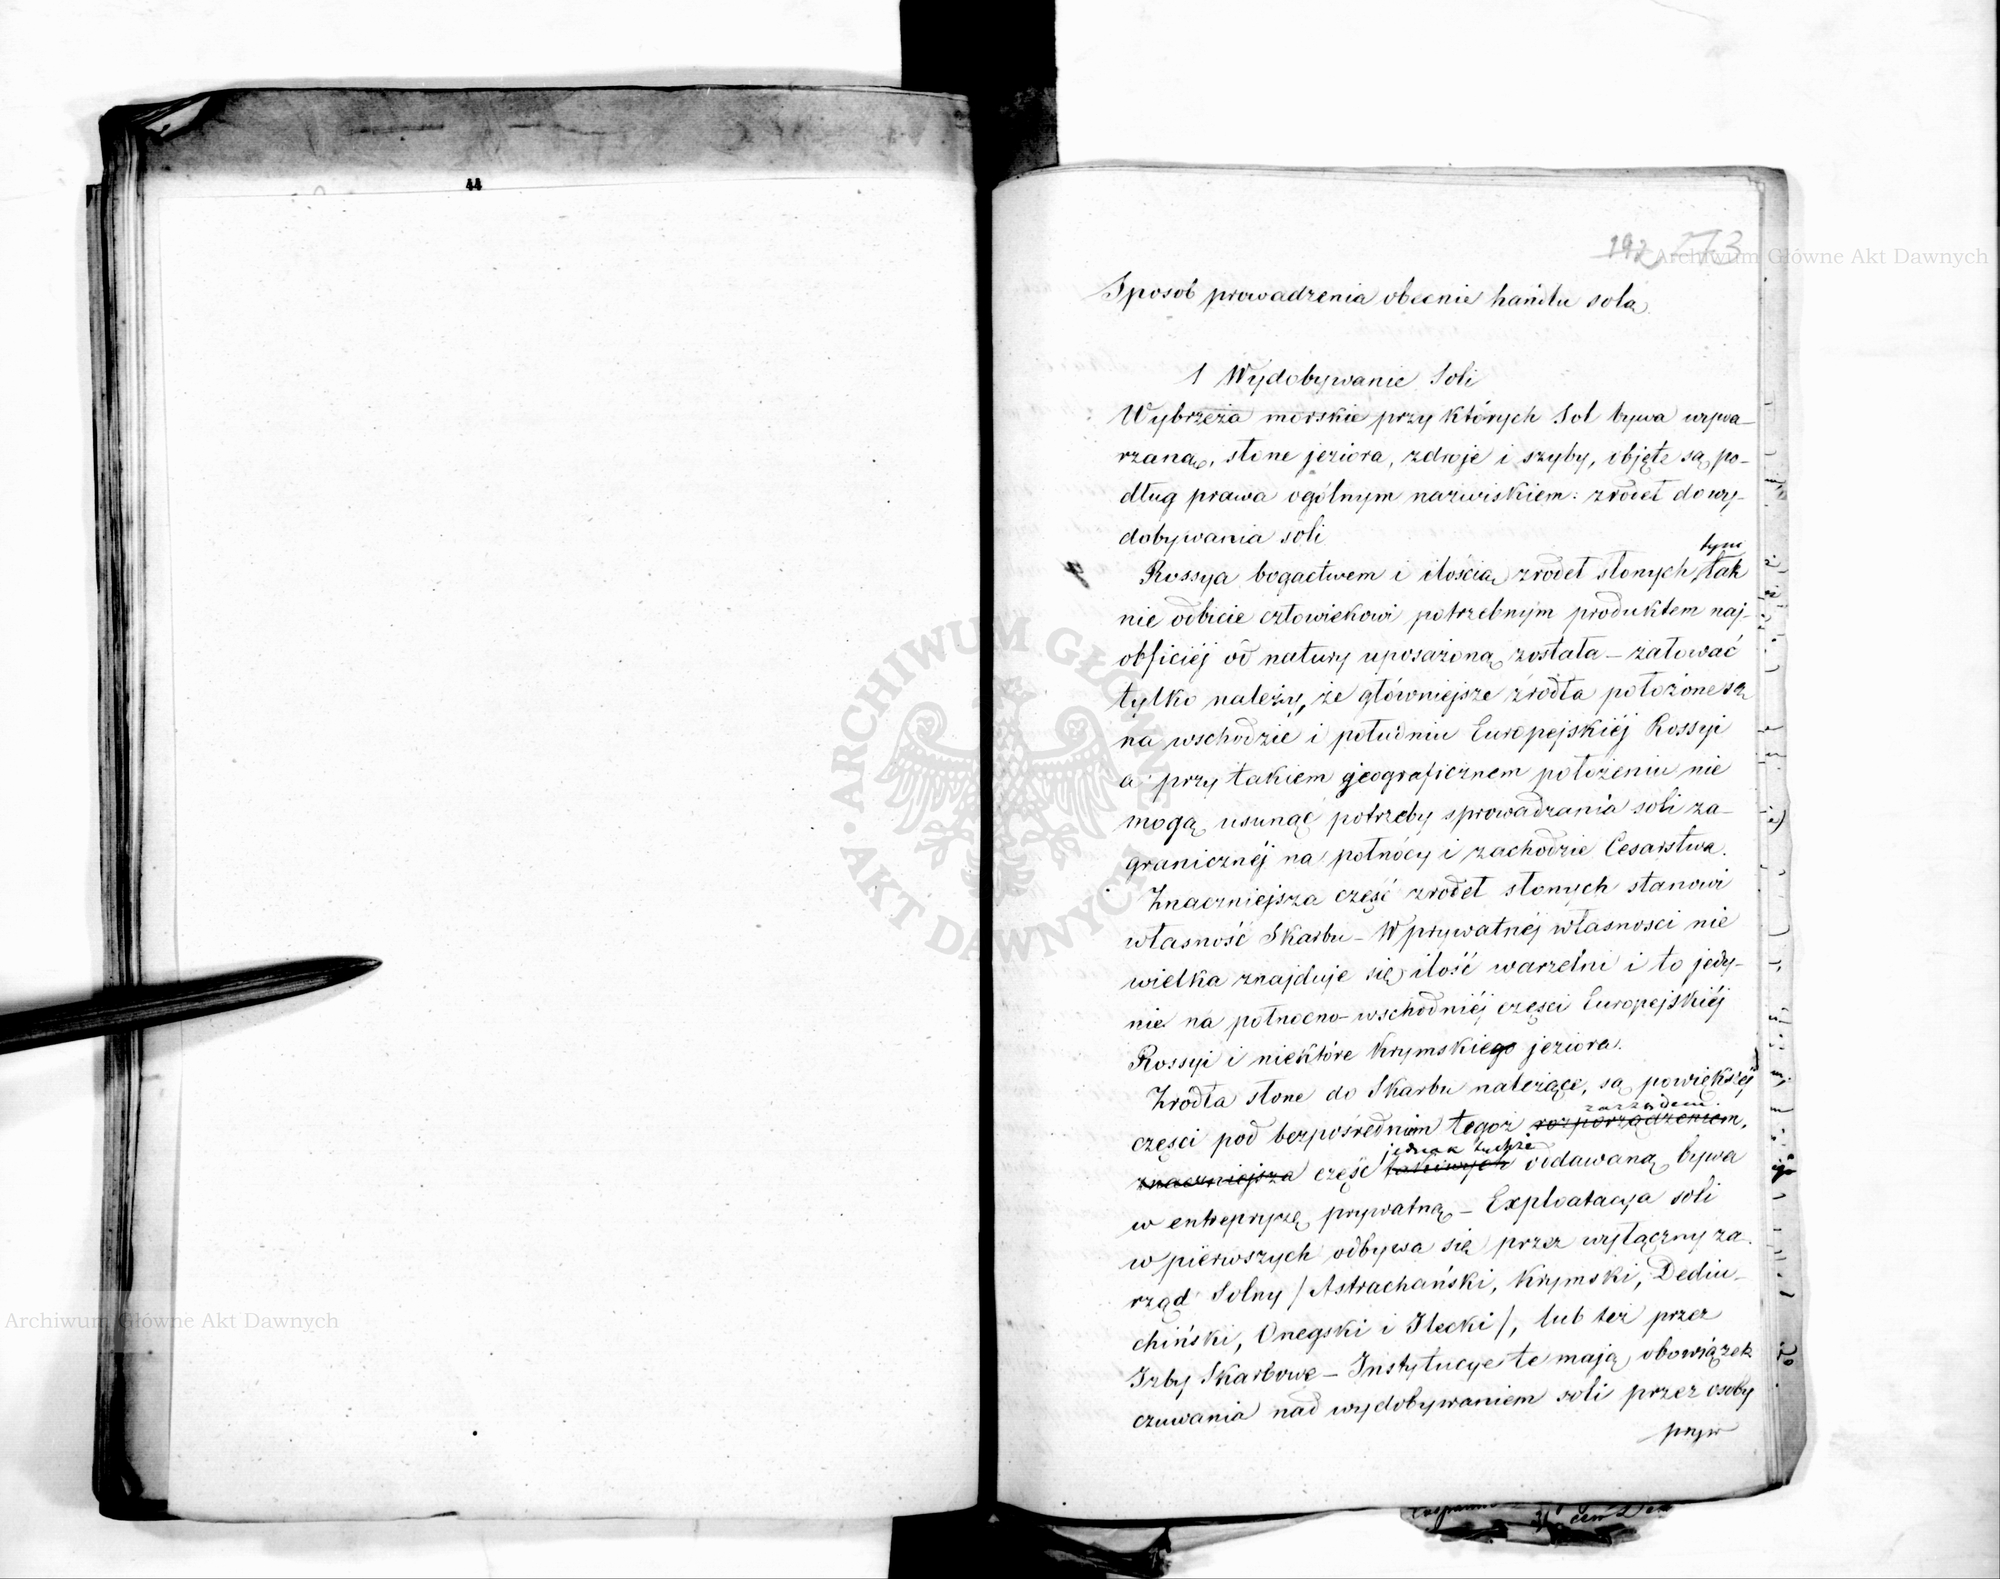 44
192 273
Sposob prowadzenia obecnie handlu solą.
1 Wydobywanie Soli
Wybrzeża morskie przy których Sol bywa wywa-
rzaną, słone jeziora, zdroje i szyby, objęte są po-
dług prawa ogólnym nazwiskiem: zrodeł do wy-
dobywania soli
Rossya bogactwem i ilością zrodeł słonych, tym tak
nie odbicie człowiekowi potrzebnym produktem naj-
obficiéj od natury uposażoną została – żałować
tylko należy, że główniejsze źrodła położone są
na wschodzie i południu Europejskiéj Rossyi
a przy takiem jeograficznem położeniu nie
mogą usunąć potrzeby sprowadzania soli za-
granicznéj na północy i zachodzie Cesarstwa.
Znaczniejsza część zrodeł słonych stanowi
własność Skarbu – W prywatnéj własnosci nie
wielka znajduje się ilość warzelni i to jedy-
nie na połnocno-wschodniéj częsci Europejskiéj
Rossyi i niektóre Krymskiego jeziora.
Zrodła słone do Skarbu należące, są powiększéj
częsci pod bezpośrednim tegoż rozporządzeniem, zarządem.
znaczniejsza część takowych jednak tychże oddawaną bywa
w entrepryzę prywatną – Exploatacya soli
w pierwszych odbywa się przez wyłączny za-
rząd Solny / Astrachański, Krymski, Dediu-
chiński, Onegski i Ilecki /, lub też przez
Izby Skarbowe – Instytucye te mają obowiązek
czuwania nad wydobywaniem soli przez osoby
pryw
ARCHIWUM GŁÓWNE AKT DAWNYCH
Archiwum Główne Akt Dawnych
Archiwum Główne Akt Dawnych